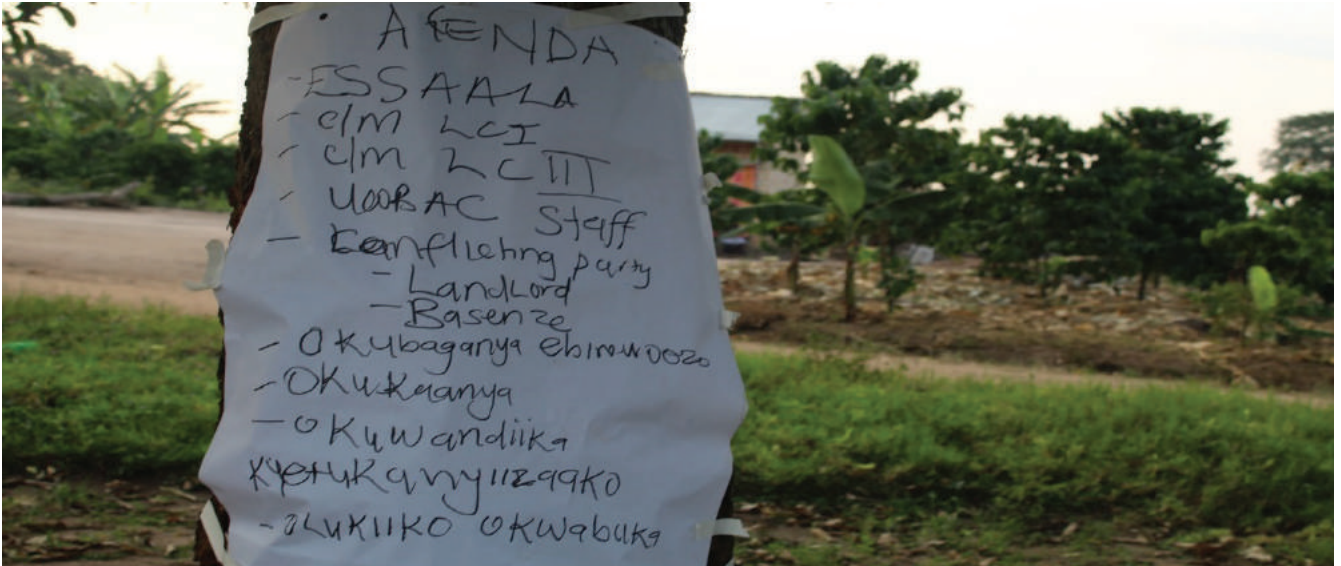 AGENDA
- ESSAALA
- C/M LCI
- C/M LCIII
- UOBAC Staff
- Conflicting party
- Landlord
- Basenze
- Okubaganya ebirowoozo
- Okukaanya
- Okuwandiika
kyetukanyiizaako
- Olukiiko okwabuka